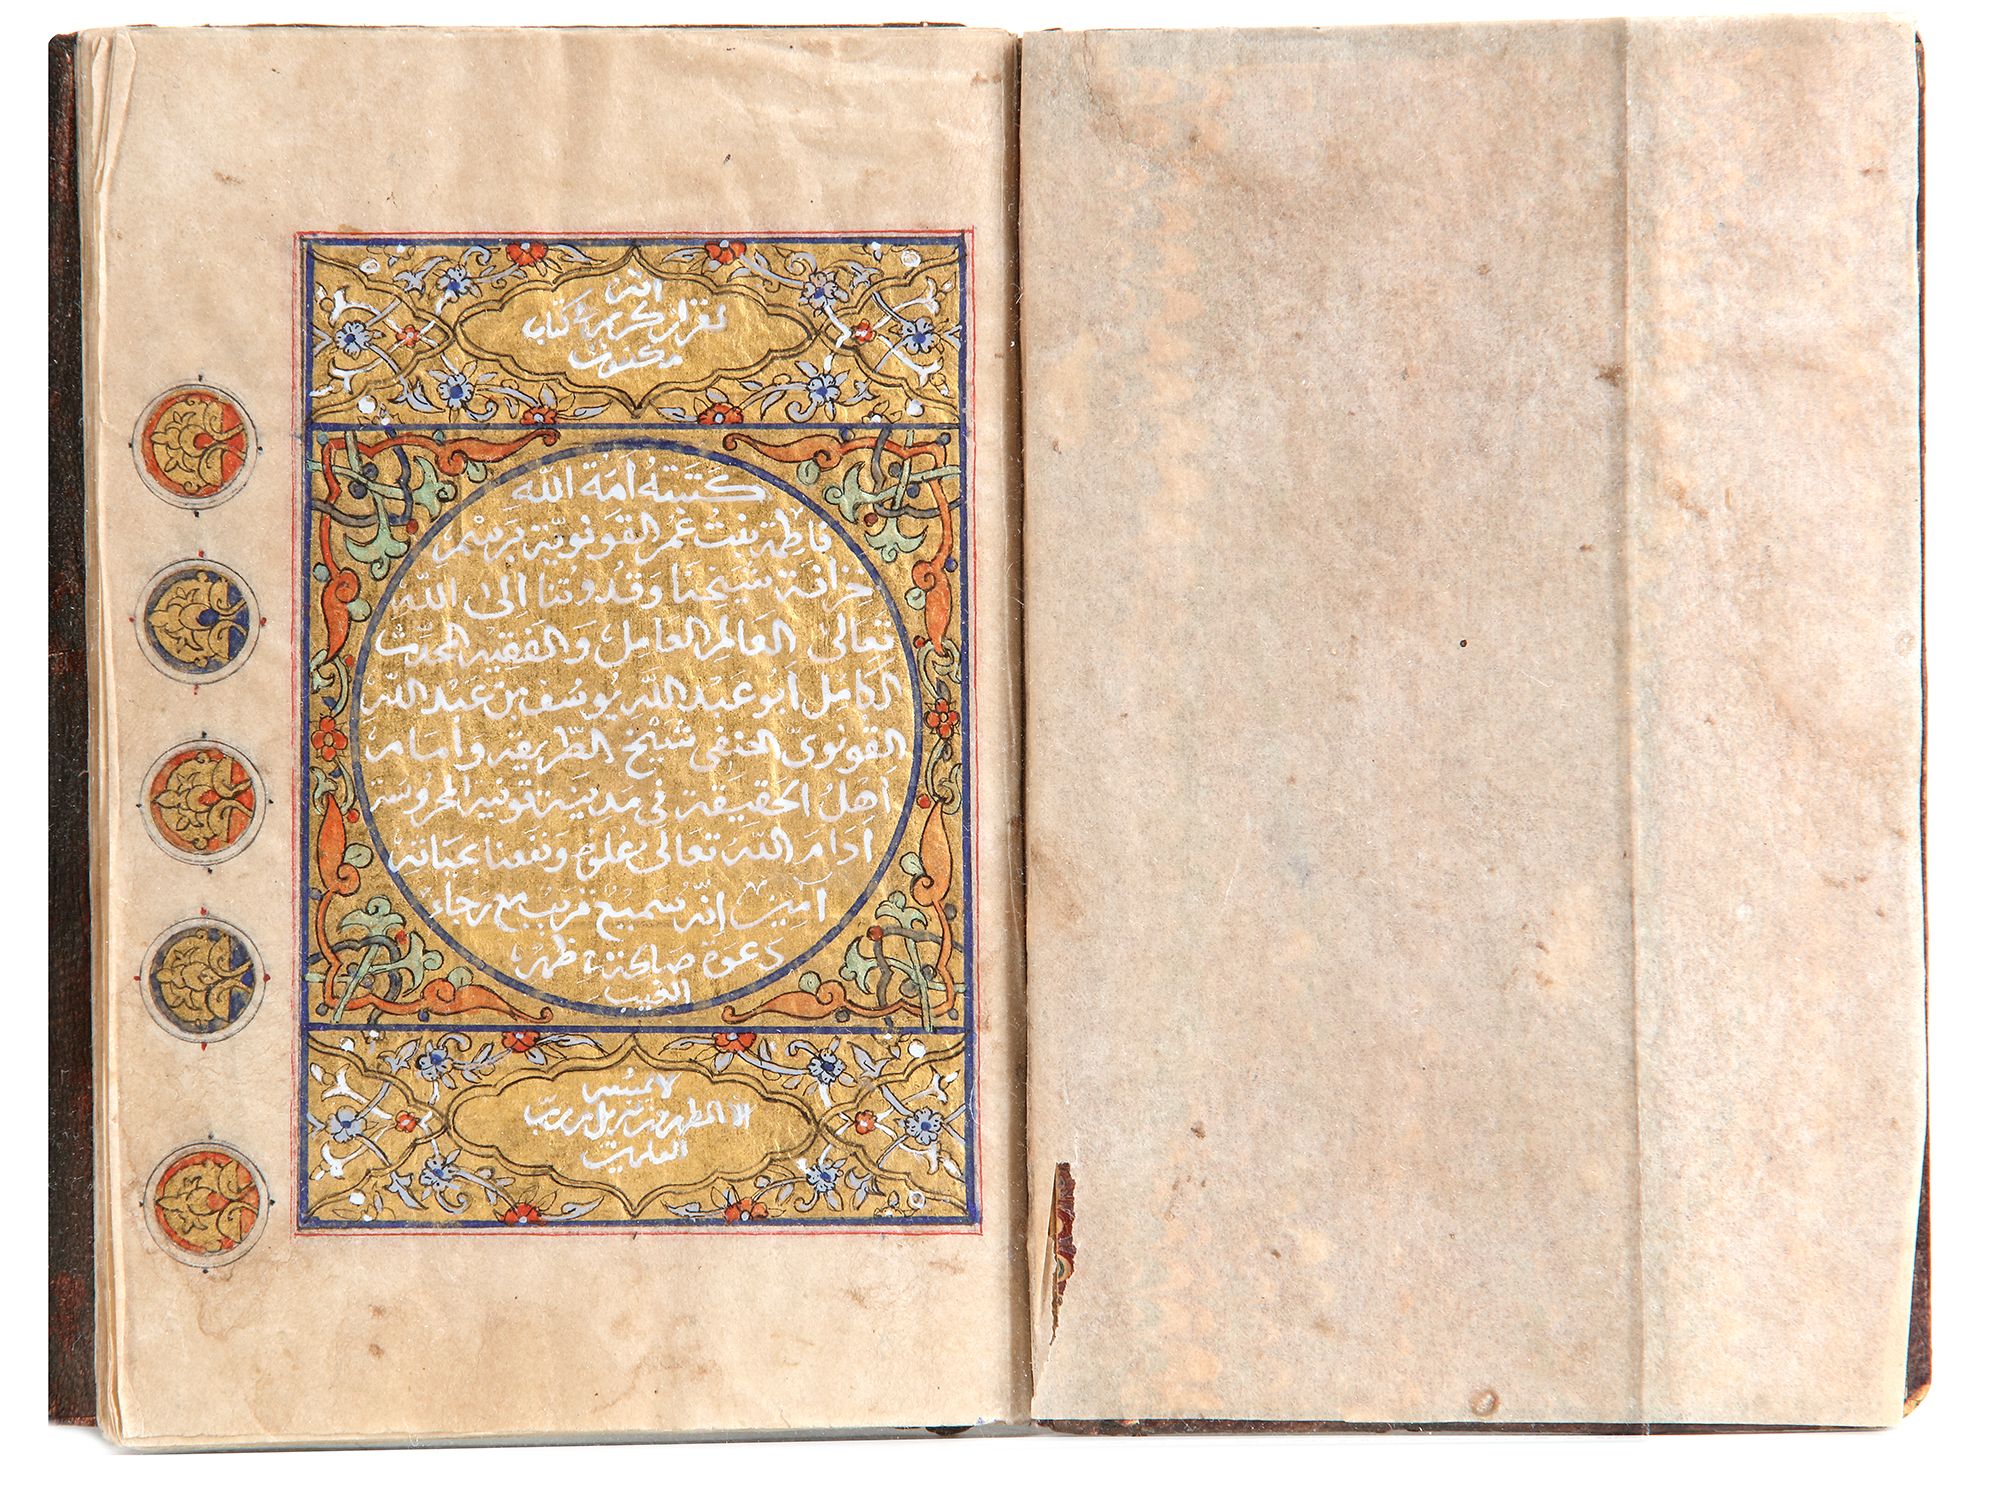 انه
لقران كريم في كتاب
مكنون
كَتَبَتهُ أمَة الله
فاطمة بنتُ عُمر القونويّة برَسْم
خزانة شَيخنَا وَقُدوتنا إلى الله
تَعالى العَالم العَامل وَالفَقيه المحَدّث
الكامل أبو عَبد الله يوسُف بن عَبد الله
القونويّ الحنفي شَيْخ الطّريقة وإمام
أهل الحَقيقة في مَدينة قونية المحرُوسَة
أدَام الله تعَالى عُلوه وَنفعنا بحيَاته
آمين إنّه سَميعُ قريب مع رَجَاء
دَعوة صَالحة في ظهر
الغيب
لا يمسُه
إلا المطهرون تنزيل من رب
العالمين